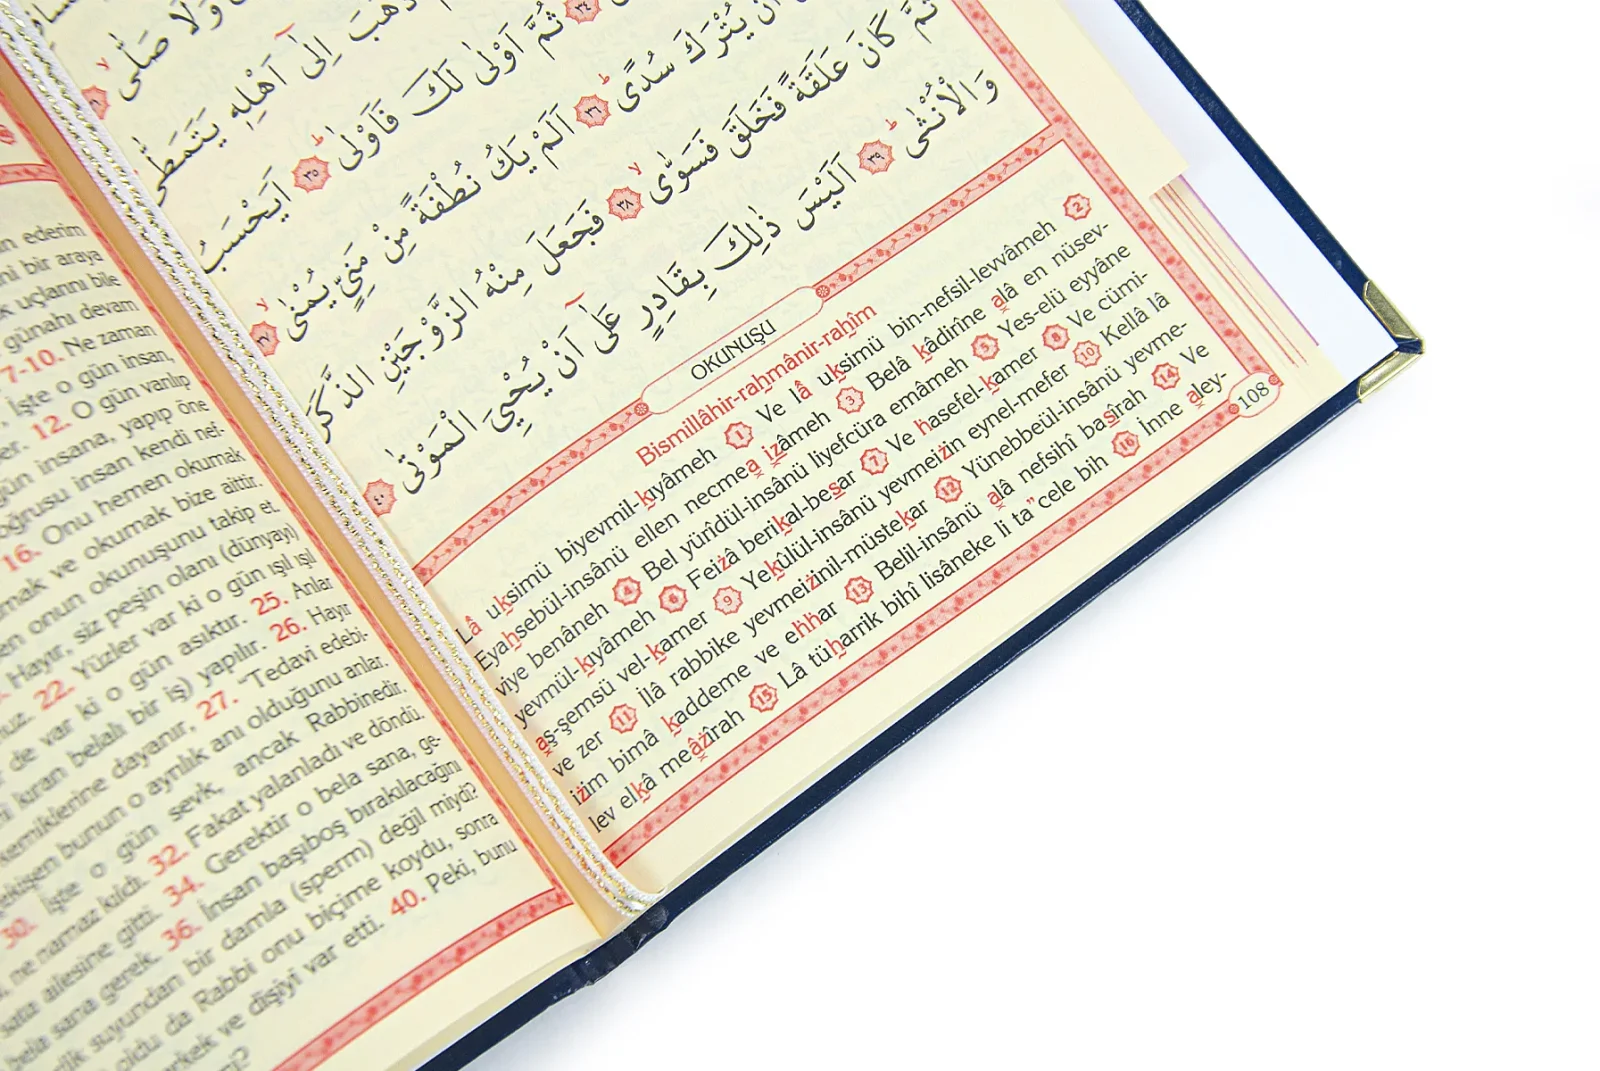 ün ederim
ni bir araya
k uçlarını bile
günahı devam
7-10. Ne zaman
İşte o gün insan,
er. 12. O gün varılıp
gün insana, yapıp öne
oğrusu insan kendi nef-
16. Onu hemen okumak
mak ve okumak bize aittir.
en onun okunuşunu takip et.
Hayır, siz peşin olanı (dünyayı)
nuz. 22. Yüzler var ki o gün ışıl ışıl
de var ki o gün asıktır. 25. Anlar
ni kıran belalı bir iş) yapılır. 26. Hayır
kemiklerine dayanır, 27. "Tedavi edebi-
ekişen bunun o ayrılık anı olduğunu anlar.
30. İşte o gün sevk, ancak Rabbinedir.
ne namaz kıldı. 32. Fakat yalanladı ve döndü.
sata ailesine gitti. 34. Gerektir o bela sana, ge-
bela sana gerek. 36. İnsan başıboş bırakılacağını
ilk suyundan bir damla (sperm) değil miydi?
oldu da Rabbi onu biçime koydu, sonra
erkek ve dişiyi var etti. 40. Peki, bunu
وَلَا صَلّٰى
ذَهَبَ اِلٰٓى اَهْلِه۪ يَتَمَطّٰى
٣٤ ثُمَّ اَوْلٰى لَكَ فَاَوْلٰى ٣٥ اَيَحْسَبُ
اَنْ يُتْرَكَ سُدًى ٣٦ اَلَمْ يَكُ نُطْفَةً مِنْ مَنِيٍّ يُمْنٰى ٣٧
ثُمَّ كَانَ عَلَقَةً فَخَلَقَ فَسَوّٰى ٣٨ فَجَعَلَ مِنْهُ الزَّوْجَيْنِ الذَّكَرَ
وَالْاُنْثٰى ٣٩ اَلَيْسَ ذٰلِكَ بِقَادِرٍ عَلٰٓى اَنْ يُحْيِيَ الْمَوْتٰى ٤٠
OKUNUŞU
Bismillâhir-rahmânir-rahîm
Lâ uksimü biyevmil-kıyâmeh 1 Ve lâ uksimü bin-nefsil-levvâmeh 2
Eyahsebül-insânü ellen necmea ızâmeh 3 Belâ kâdirîne alâ en nüsev-
viye benâneh 4 Bel yürîdül-insânü liyefcüra emâmeh 5 Yes-elü eyyâne
yevmül-kıyâmeh 6 Feizâ berikal-besar 7 Ve hasefel-kamer 8 Ve cümi-
aş-şemsü vel-kamer 9 Yekûlül-insânü yevmeizin eynel-mefer 10 Kellâ lâ
ve zer 11 İlâ rabbike yevmeizinil-müstekar 12 Yünebbeül-insânü yevme-
izim bimâ kaddeme ve ehhar 13 Belil-insânü alâ nefsihî basîrah 14 Ve
lev elkâ meâzîrah 15 Lâ tüharrik bihî lisâneke li ta"cele bih 16 İnne aley-
108